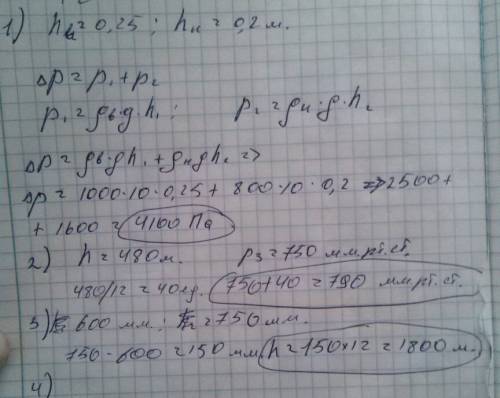 1) hв = 0,25 ; hк = 0,2 м.
Δp = p₁ + p₂
p₁ = gв·g·h₁ ; p₂ = gк·g·h₂
Δp = gв·gh₁ + gкgh₂ =>
Δp = 1000·10·0,25 + 800·10·0,2 => 2500 +
+ 1600 = 4100 Па
2) h = 480 м. p₃ = 750 мм.рт.ст.
480/12 = 40 ед. 750+40 = 790 мм.рт.ст.
3) 600 мм. ; = 750 мм.
750 - 600 = 150 мм h = 150×12 = 1800 м.
4)